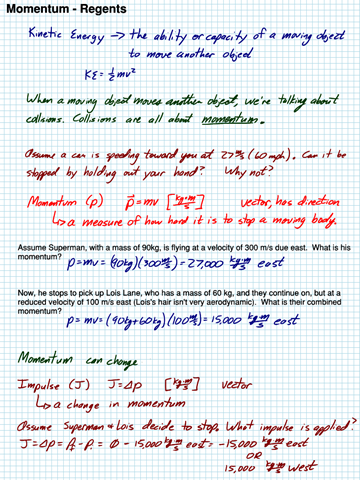 Momentum - Regents
Kinetic Energy → the ability or capacity of a moving object
to move another object
KE = ½mv²
When a moving object moves another object, we're talking about
collisions. Collisions are all about momentum.
Assume a car is speeding toward you at 27 m/s (60 mph). Can it be
stopped by holding out your hand? Why not?
Momentum (p) p⃗=mv [kg·m/s] vector, has direction
↳ a measure of how hard it is to stop a moving body.
Assume Superman, with a mass of 90kg, is flying at a velocity of 300 m/s due east. What is his
momentum?
p=mv= (90kg)(300 m/s) = 27,000 kg·m/s east
Now, he stops to pick up Lois Lane, who has a mass of 60 kg, and they continue on, but at a
reduced velocity of 100 m/s east (Lois's hair isn't very aerodynamic). What is their combined
momentum?
p=mv= (90kg+60kg)(100 m/s) = 15,000 kg·m/s east
Momentum can change
Impulse (J) J=Δp [kg·m/s] vector
↳ a change in momentum
Assume Superman & Lois decide to stop. What impulse is applied?
J=Δp= Pf - Pi = 0 - 15,000 kg·m/s east = -15,000 kg·m/s east
OR
15,000 kg·m/s west